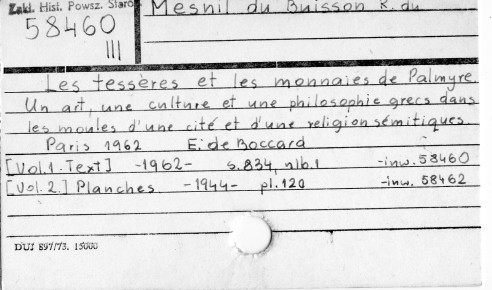 Zakł. Hist. Powsz. Staro
58460
III
Mesnil du Buisson R. du
Les tessères et les monnaies de Palmyre
Un art, une culture et une philosophie grecs dans
les moules d'une cité et d'une religion sémitiques
Paris 1962 E. de Boccard
[Vol.1. Text] -1962- s.834, nlb.1 -inw. 58460
[Vol. 2.] Planches -1944- pl.120 -inw. 58462
DUJ 897/73. 15000